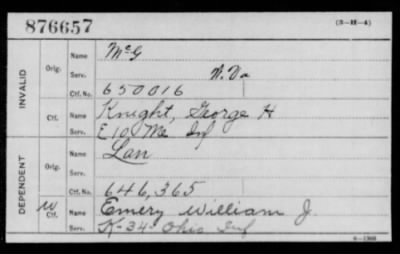 876657 (3-H-4)
INVALID
Orig. Name McG
Serv. W. Va
Ctf. No. 650016
Ctf. Name Knight, George H
Serv. E 10 Me Inf
DEPENDENT
Orig. Name Lan
Serv.
Ctf. No. 646,365
W Ctf. Name Emery William J.
Serv. K-34 Ohio Inf